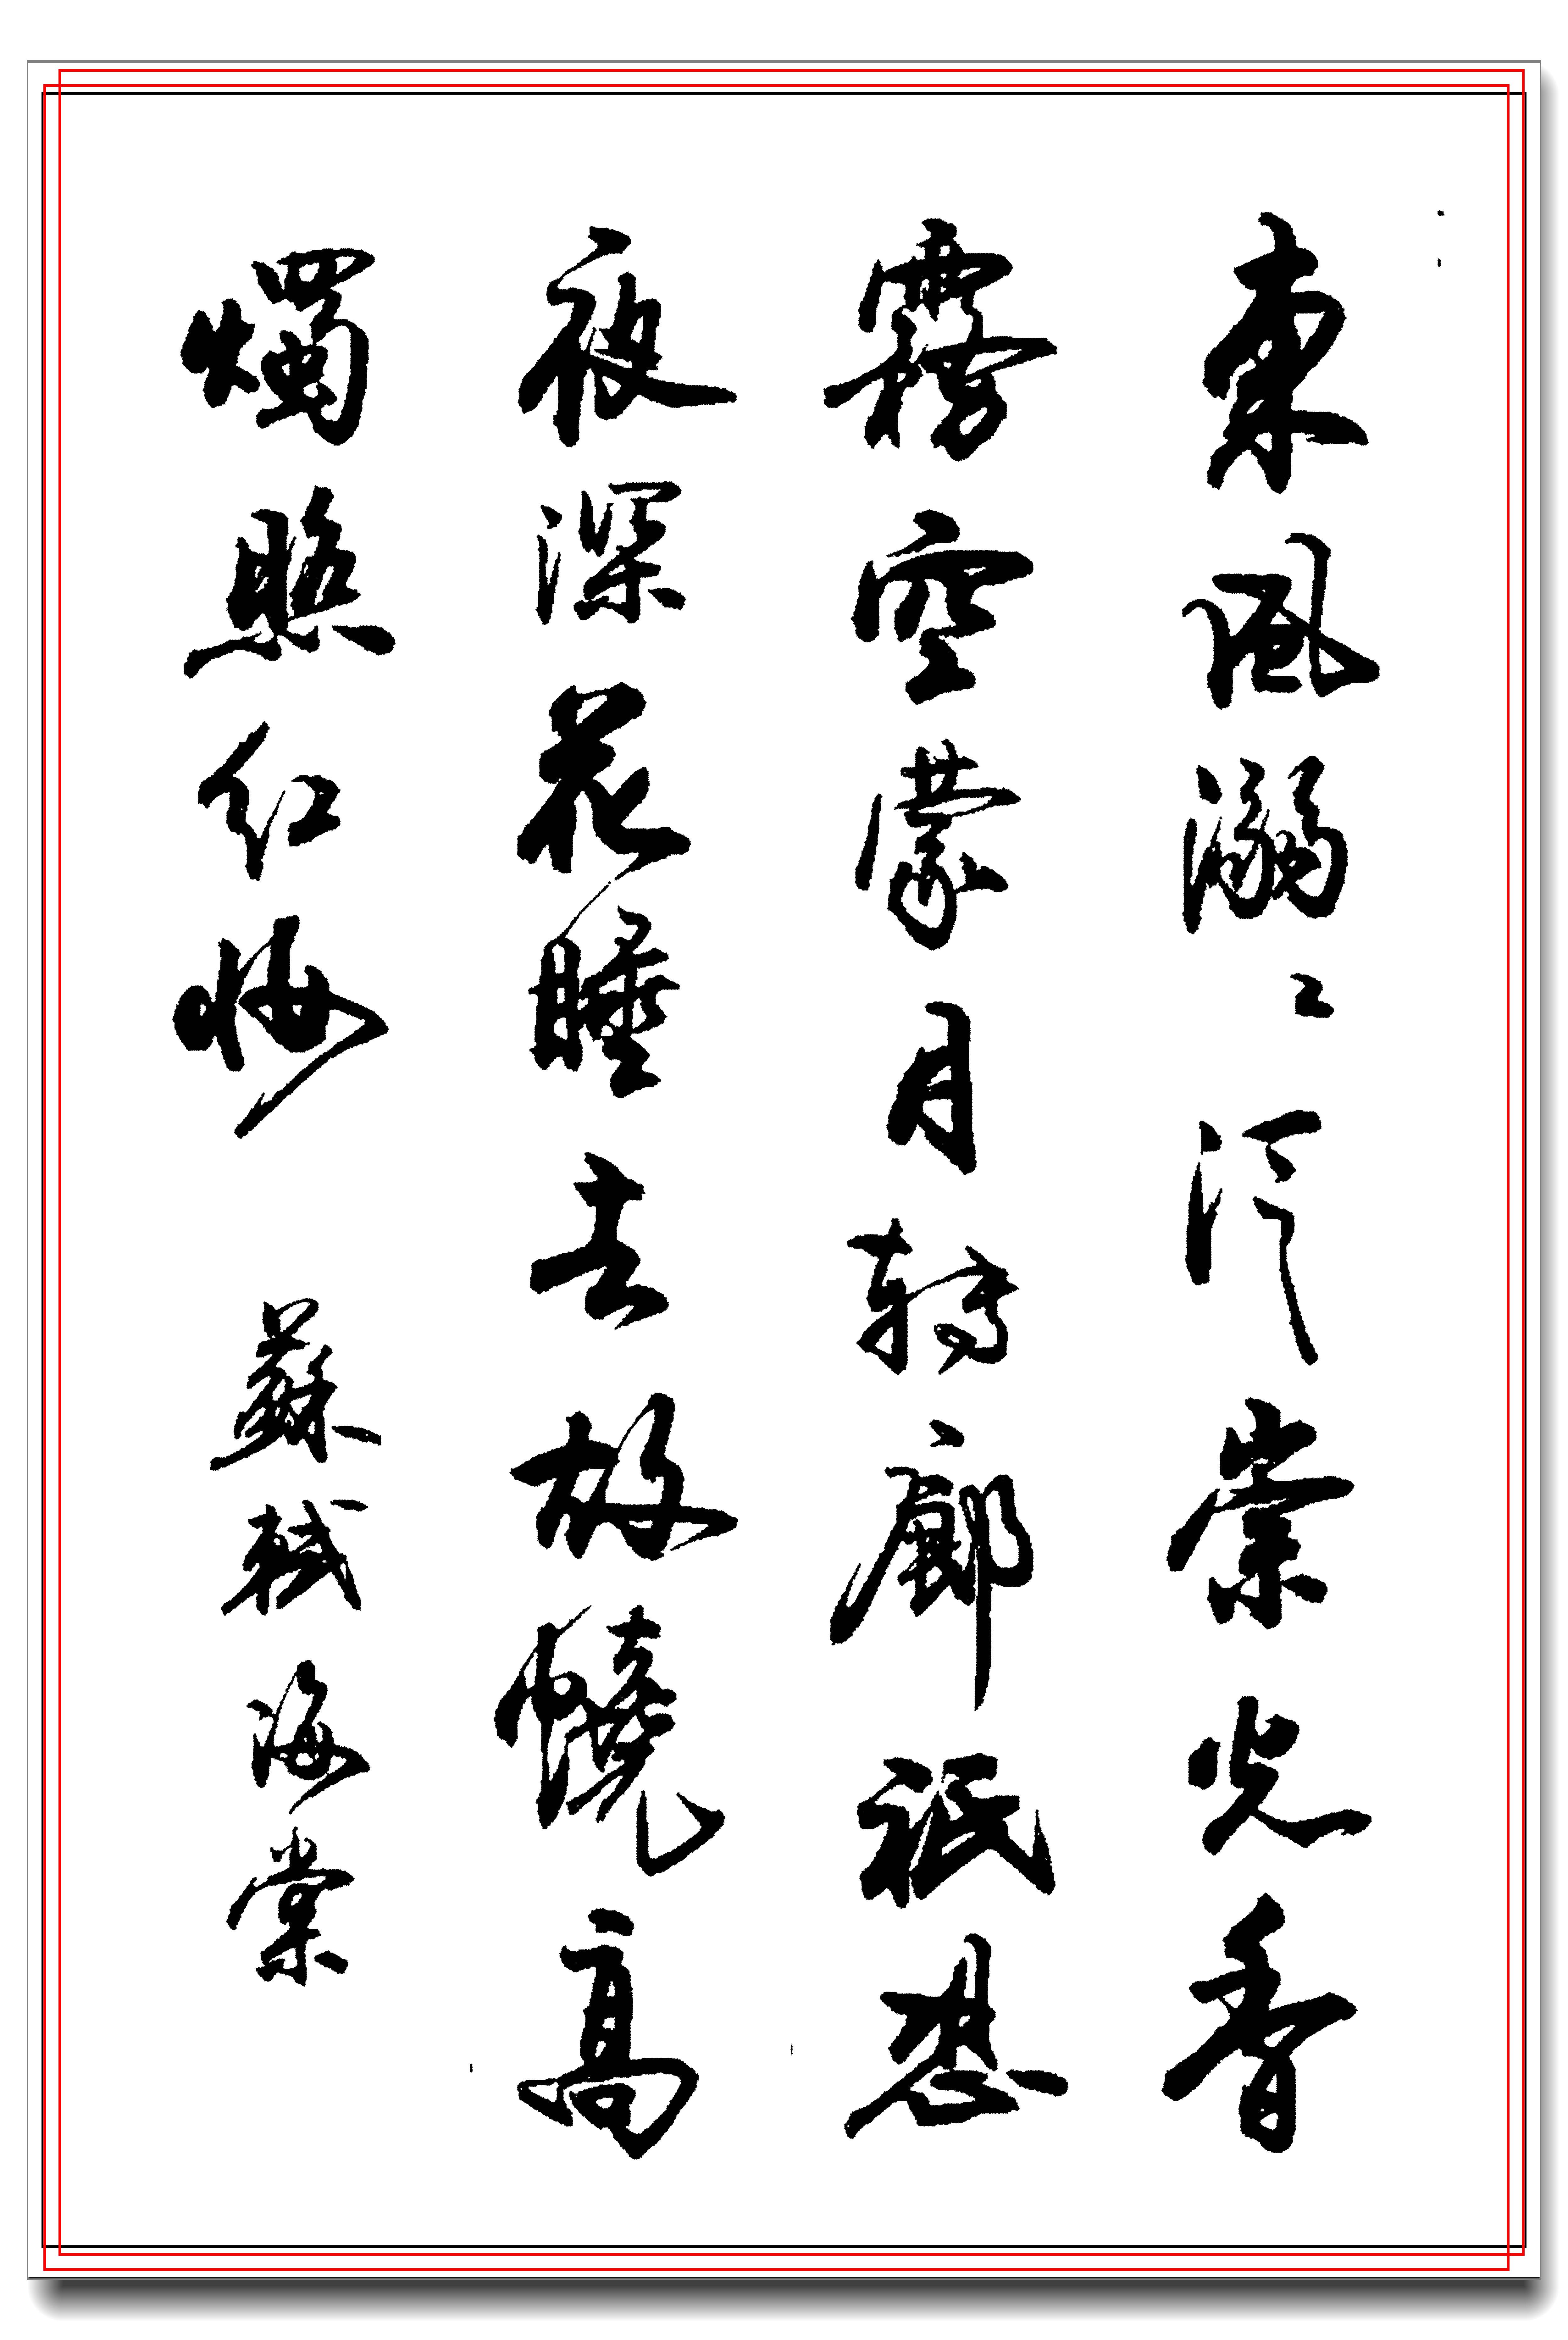 東風溺々泛崇光香
霧空蒙月轉廊祇恐
夜深花睡去故燒高
燭照紅妝 蘇軾海棠